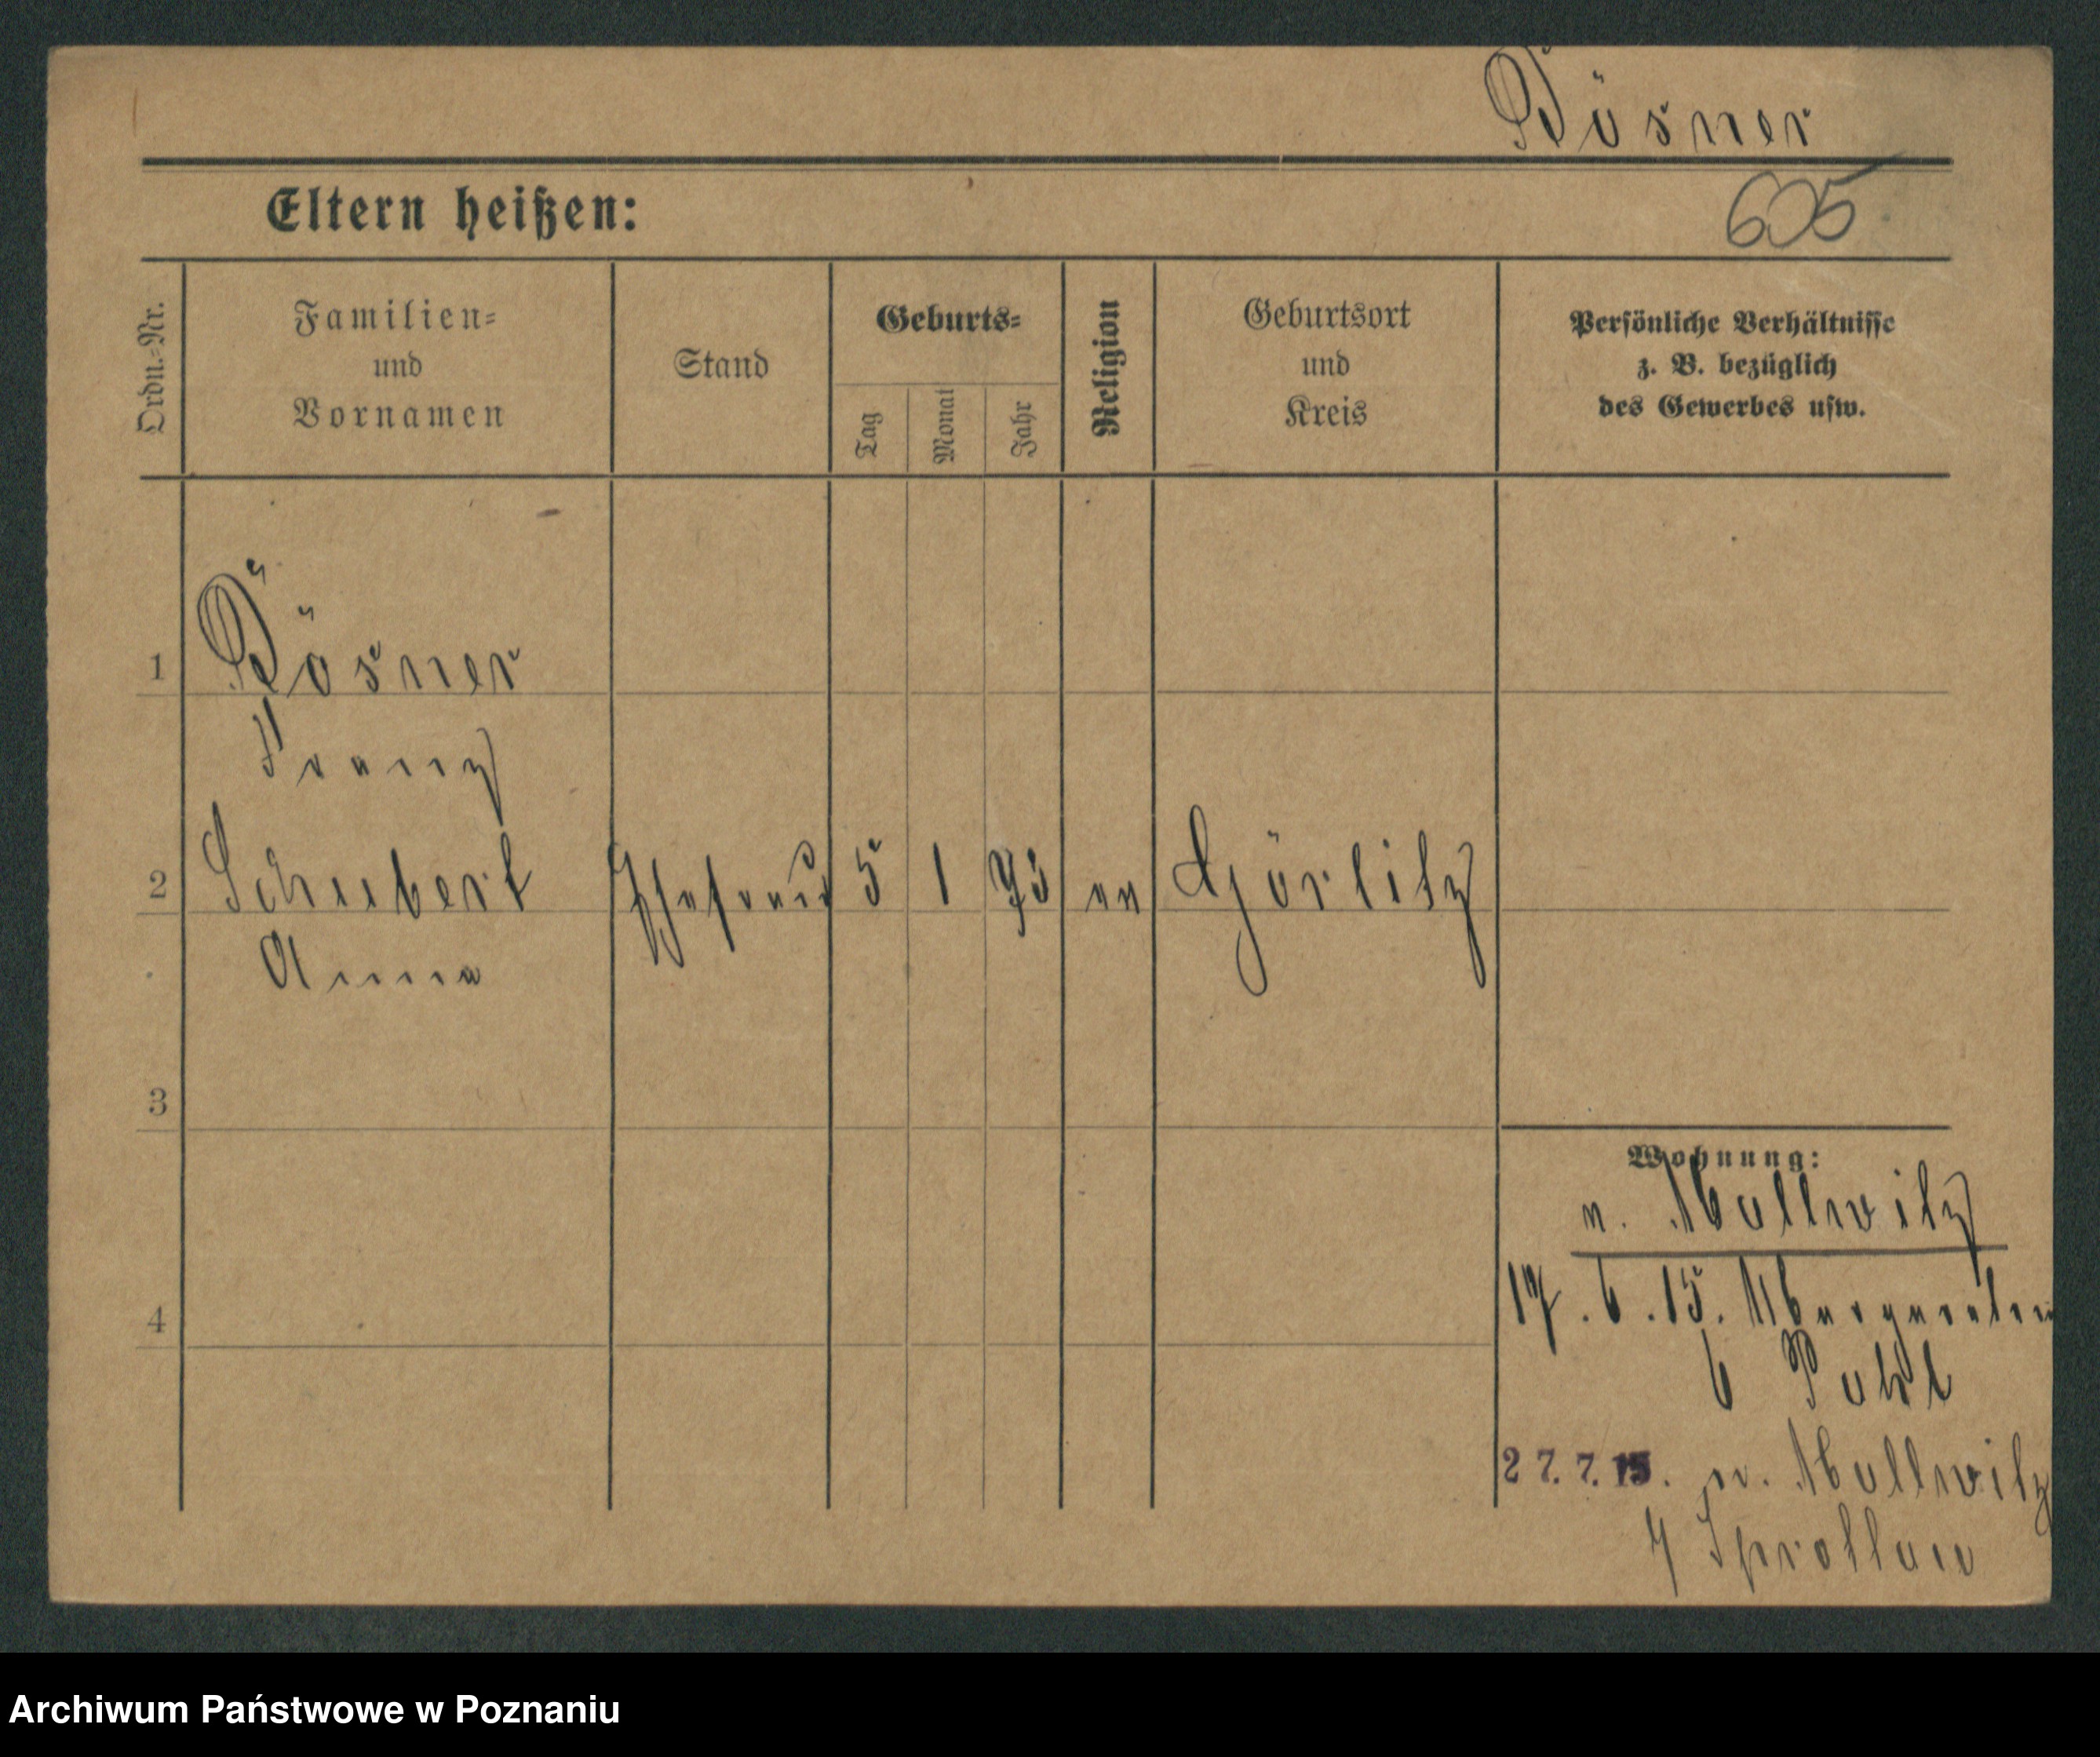 Bösner
605
Eltern heißen:
Ordn.=Nr.
Familien=
und
Vornamen
Stand
Geburts=
Tag
Monat
Jahr
Religion
Geburtsort
und
Kreis
Persönliche Verhältnisse
z. B. bezüglich
des Gewerbes usw.
1 Bösner
Franz
2 Schubert Ehefrau 5 1 93 ev Görlitz
Anna
3
4
Wohnung:
n. Mollwitz
17.6.15.
6 Pohl
27.7.15. n. Mollwitz
Sprottau
Archiwum Państwowe w Poznaniu